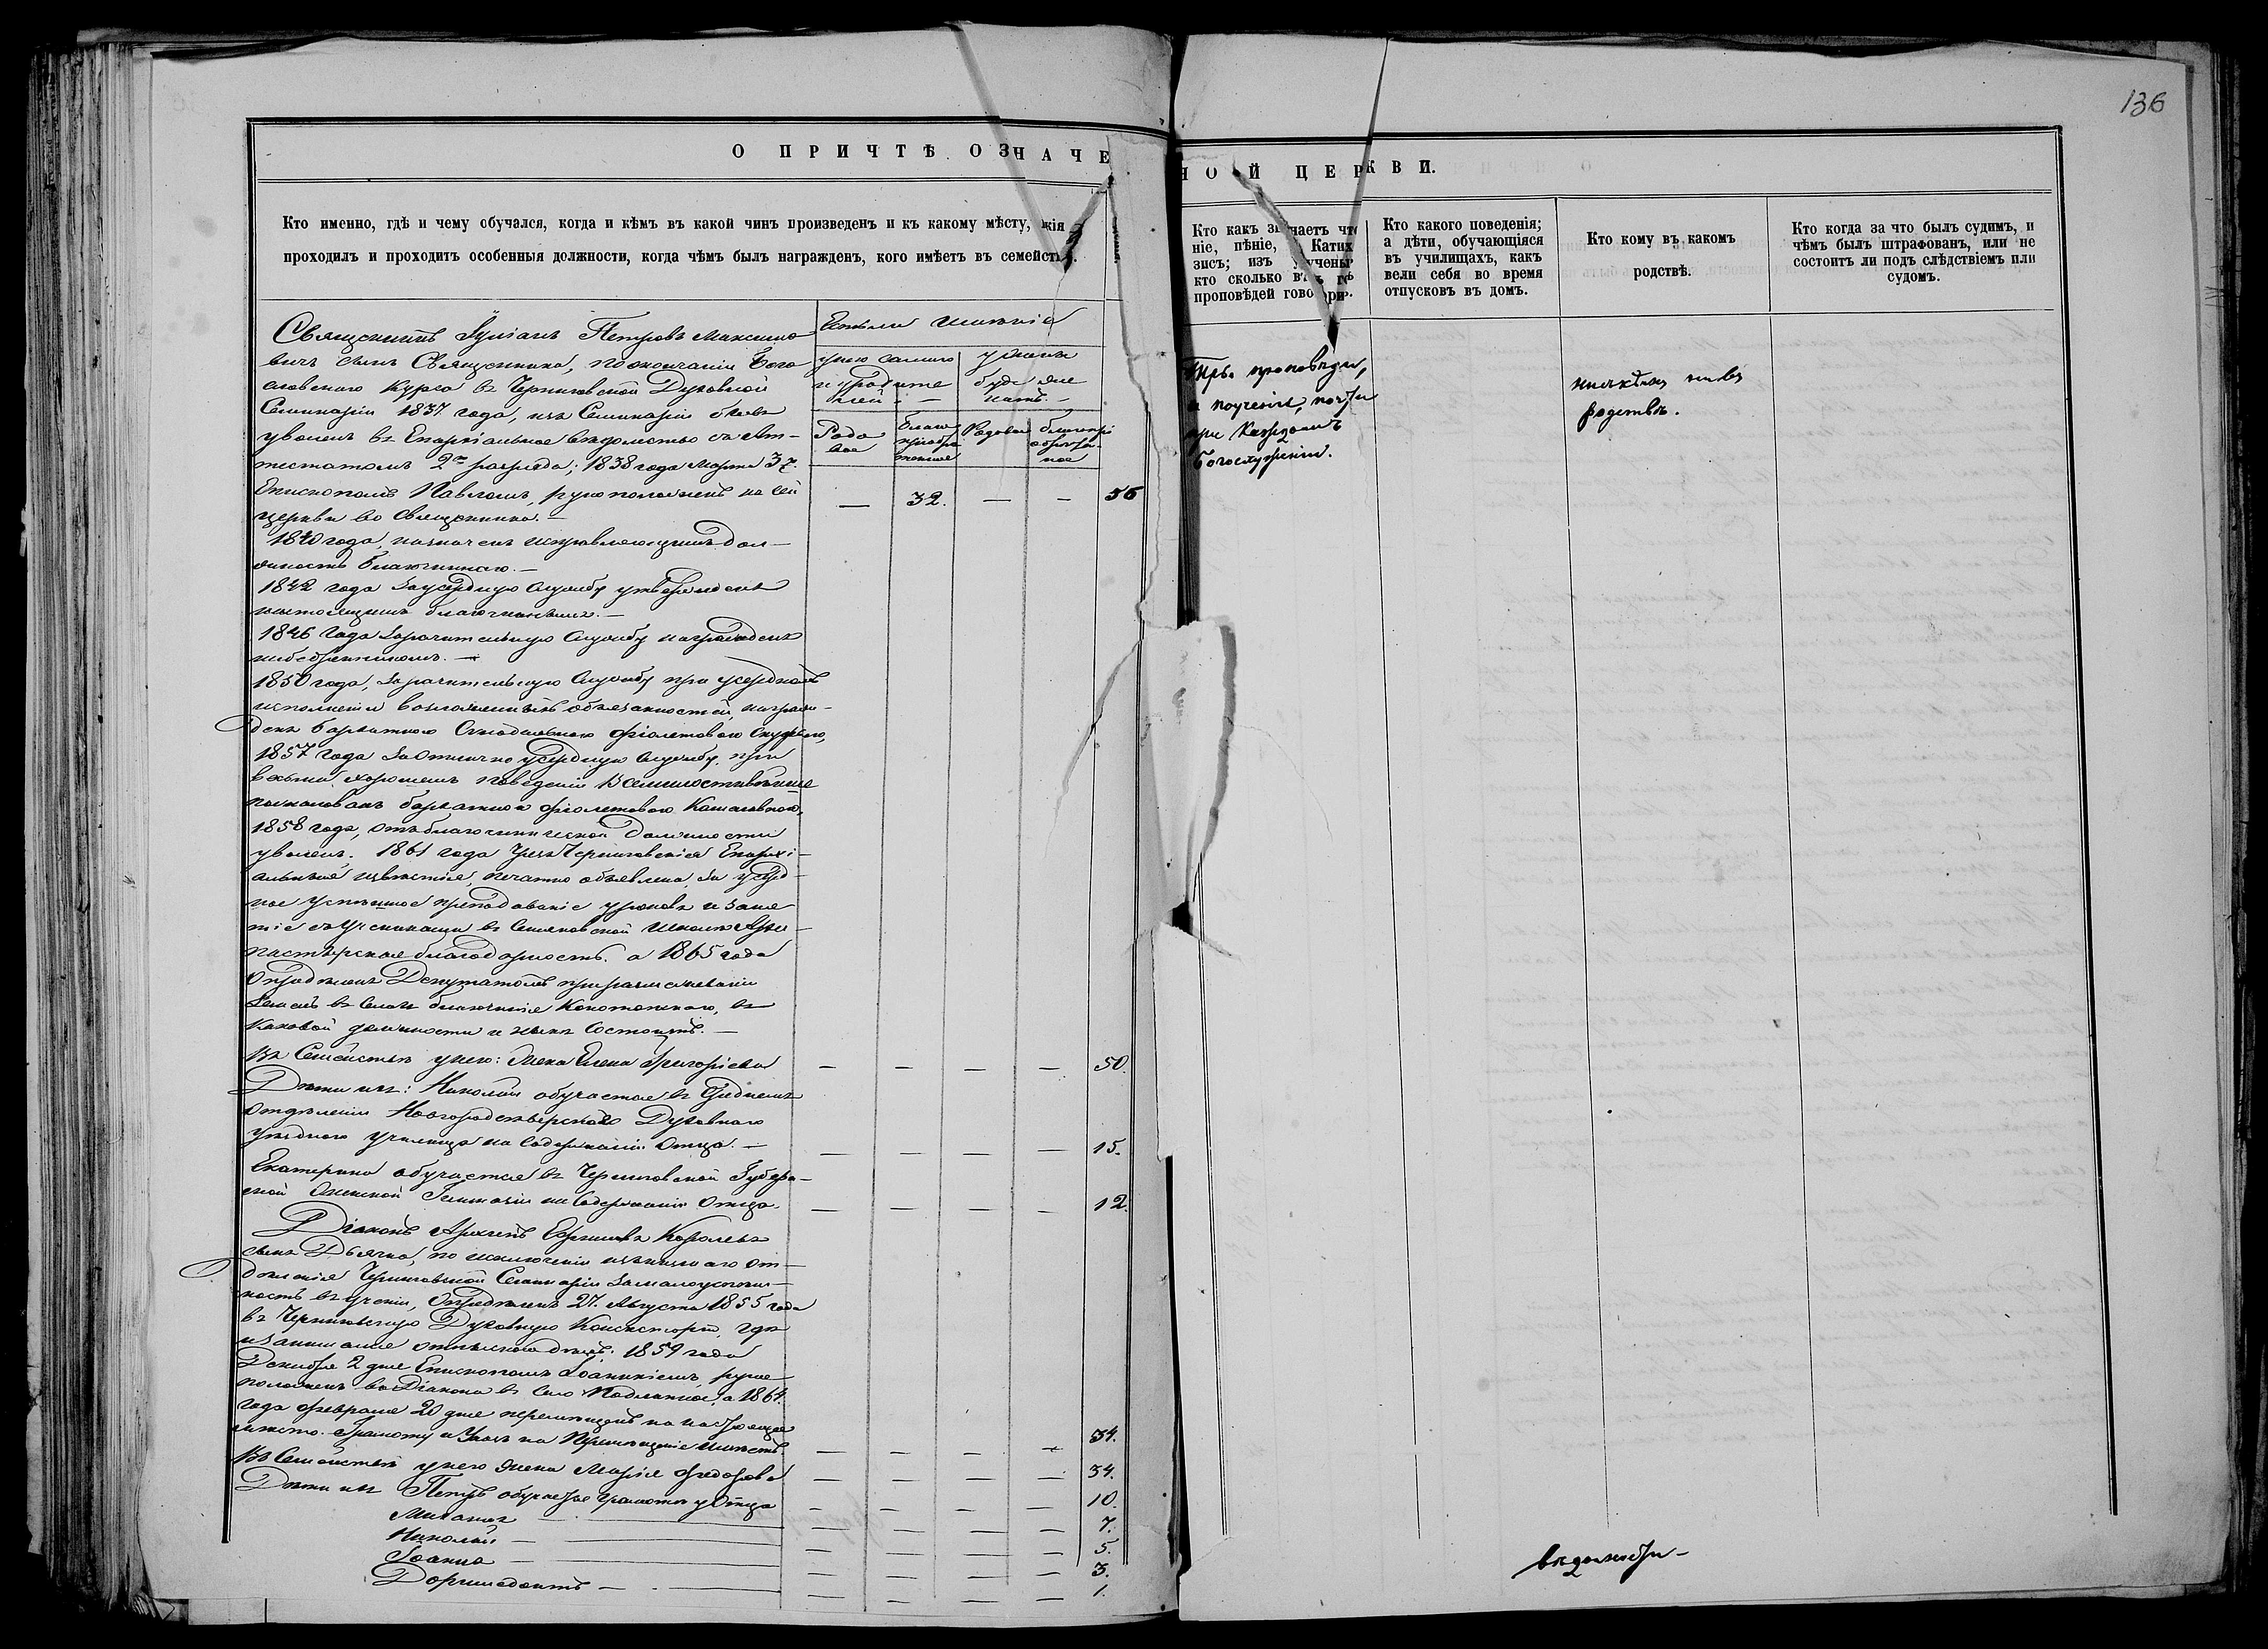 136
О ПРИЧТѢ ОЗНАЧЕ
НОЙ ЦЕРКВИ.
Кто именно, гдѣ и чему обучался, когда и кѣмъ въ какой чинъ произведенъ и къ какому мѣсту, кія
проходилъ и проходитъ особенныя должности, когда чѣмъ былъ награжденъ, кого имѣетъ въ семействѣ.
Священникъ Іуліанъ Петровъ Максимо
вичъ сынъ Священника, по окончаніи Бого
словскаго курса въ Черниговской Духовной
Семинаріи 1837 года, изъ Семинаріи былъ
уволенъ въ Епархіальное вѣдомство съ Ат-
тестатомъ 2го разряда; 1838 года Марта
Епископомъ Павломъ, рукоположенъ къ сей
церкви во священника.—
1840 года, назначенъ исправляющимъ дол-
жность благочиннаго.—
1842 года за усердную службу утвержденъ
настоящимъ благочиннымъ.—
1846 года за рачительную службу награжденъ
набедренникомъ.—
1850 года, за рачительную службу при усердномъ
исполненіи возложенныхъ обязанностей, награж-
денъ бархатною фіолетовою скуфьею,
1857 года за отлично усердную службу, при
весьма хорошемъ поведеніи Всемилостивѣйше
пожалованъ бархатною фіолетовою Камилавкою,
1858 года, отъ благочиннической должности
уволенъ. 1861 года чрезъ Черниговскія Епархі-
альныя извѣстія, печатно объявлена, за усерд-
ное успѣшное преподаваніе уроковъ и заня
тіе съ учениками въ школѣ Архи-
пастырская благодарность. а 1865 года
Опредѣленъ Депутатомъ при размежеваніи
земель въ благочинія Конотопскаго, въ
каковой должности и нынѣ состоитъ.—
Въ Семействѣ у него: Жена Елена Григоріева — — — — 50.
Дѣти ихъ: Николай обучается въ Среднемъ
отдѣленіи Новгородсѣверскаго Духовнаго
уѣзднаго училища на содержаніи Отца.— — — — — 15.
Екатерина обучается въ Черниговской Губерн-
ской Женской Гимназіи на содержаніи Отца. — — — — 12.
Діаконъ Архипъ Ефимовъ Королевъ
сынъ Дьячка, по исключеніи изъ низшаго от-
дѣленія Черниговской Семинаріи за малоуспѣш-
ность въ ученіи, опредѣленъ 27. Августа 1855 года
въ Черниговскую Духовную Консисторію, гдѣ
и занимался письмоводствомъ. 1859 года
Декабря 2 дня Епископомъ руко
положенъ во Діакона въ село Подлипное, а 1864.
года февраля 20 дня перемѣщенъ на настоящее
мѣсто. Грамоту и Указъ на перемѣщеніе имѣетъ. — — — — 34.
Въ Семействѣ у него жена Марія Федорова — — — — 34.
Дѣти ихъ Петръ обучается грамотѣ у Отца — — — — 10.
Михаилъ — — — — 7.
Николай — — — — 5.
Іоаннъ — — — — 3.
Доримедонтъ — — — — 1.
у него самого
и родите
лей —
у жены
буде
Родо
вое
Благо
пріобрѣ
тенное
Родовое
благопрі
обрѣтен
ное
— 32. — — 56
Кто какъ знаетъ чте
ніе, пѣніе, Катих
зисъ; изъ ученыхъ
кто сколько въ го
проповѣдей говори
Три проповѣди,
и поученія, почти
при каждомъ
Богослуженіи.
Кто какого поведенія;
а дѣти, обучающіяся
въ училищахъ, какъ
вели себя во время
отпусковъ въ домъ.
Кто кому въ какомъ
родствѣ.
ни съ кѣмъ не въ
родствѣ.
Кто когда за что былъ судимъ, и
чѣмъ былъ штрафованъ, или не
состоитъ ли подъ слѣдствіемъ или
судомъ.